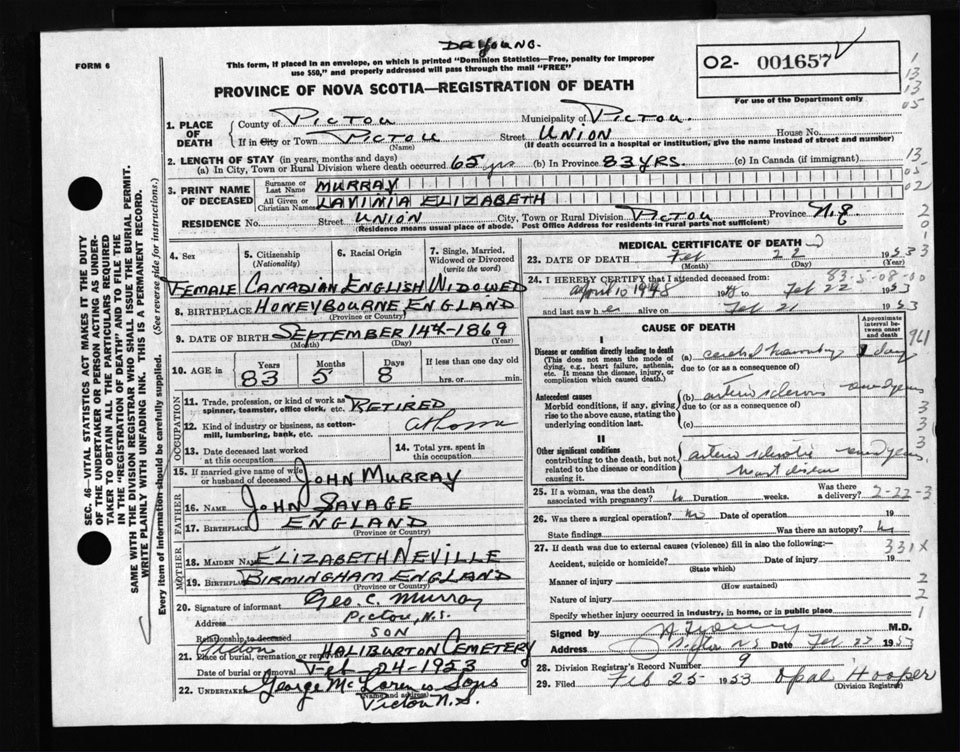 DR YOUNG.
FORM 6
This form, if placed in an envelope, on which is printed "Dominion Statistics—Free, penalty for improper
use $50," and properly addressed will pass through the mail "FREE"
O2- 001657
For use of the Department only
PROVINCE OF NOVA SCOTIA—REGISTRATION OF DEATH
1. PLACE OF DEATH
County of PICTOU Municipality of PICTOU.
If in City or Town PICTOU Street UNION House No.
(Name) (If death occurred in a hospital or institution, give the name instead of street and number)
2. LENGTH OF STAY (in years, months and days)
(a) In City, Town or Rural Division where death occurred 65 yrs (b) In Province 83 YRS. (c) In Canada (if immigrant)
3. PRINT NAME OF DECEASED
Surname or Last Name MURRAY
All Given or Christian Names LAVINIA ELIZABETH
RESIDENCE No. Street UNION City, Town or Rural Division PICTOU Province N.S
(Residence means usual place of abode. Post Office Address for residents in rural parts not sufficient)
4. Sex 5. Citizenship (Nationality) 6. Racial Origin 7. Single, Married, Widowed or Divorced (write the word)
FEMALE CANADIAN ENGLISH WIDOWED
8. BIRTHPLACE HONEYBOURNE ENGLAND
(Province or Country)
9. DATE OF BIRTH SEPTEMBER 14th-1869
(Month) (Day) (Year)
10. AGE in Years Months Days If less than one day old
83 5 8 hrs. or min.
OCCUPATION
11. Trade, profession, or kind of work as spinner, teamster, office clerk, etc. RETIRED
12. Kind of industry or business, as cotton-mill, lumbering, bank, etc. at home
13. Date deceased last worked at this occupation
14. Total yrs. spent in this occupation
15. If married give name of wife or husband of deceased JOHN MURRAY
FATHER
16. NAME JOHN SAVAGE
17. BIRTHPLACE ENGLAND
(Province or Country)
MOTHER
18. MAIDEN NAME ELIZABETH NEVILLE
19. BIRTHPLACE BIRMINGHAM ENGLAND
(Province or Country)
20. Signature of informant Geo. C. Murray
Pictou, N.S.
Relationship to deceased SON
21. Place of burial, cremation or removal Pictou HALIBURTON CEMETERY
Date of burial or removal Feb 24-1953
22. UNDERTAKER George McLaren & Sons
(Name and address)
Pictou N.S.
MEDICAL CERTIFICATE OF DEATH
23. DATE OF DEATH Feb 22 1953
(Month) (Day) (Year)
83-5-08-00
24. I HEREBY CERTIFY that I attended deceased from:
April 10 1948 to Feb 22 1953
and last saw her alive on Feb 21 1953
CAUSE OF DEATH
Approximate interval between onset and death
I
Disease or condition directly leading to death
(This does not mean the mode of dying, e.g., heart failure, asthenia, etc. It means the disease, injury, or complication which caused death.)
(a) 1 day
due to (or as a consequence of)
Antecedent causes
Morbid conditions, if any, giving rise to the above cause, stating the underlying condition last.
(b) arterio sclerosis
due to (or as a consequence of)
(c)
II
Other significant conditions
contributing to the death, but not related to the disease or condition causing it.
arterio sclerotic
heart disease
25. If a woman, was the death associated with pregnancy? no Duration weeks. Was there a delivery? 2-22-3
26. Was there a surgical operation? no Date of operation 19
State findings Was there an autopsy? no
27. If death was due to external causes (violence) fill in also the following:—
331X
Accident, suicide or homicide? Date 19
(State which)
Manner of injury
(How sustained)
Nature of injury
Specify whether injury occurred in industry, in home, or in public place
Signed by Young M.D.
Address Pictou N.S Date Feb 23 1953
28. Division Registrar's Record Number 9
29. Filed Feb 25 1953 Opal Hooper
(Division Registrar)
SEC. 46—VITAL STATISTICS ACT MAKES IT THE DUTY
OF THE UNDERTAKER OR PERSON ACTING AS UNDER-
TAKER TO OBTAIN ALL THE PARTICULARS REQUIRED
IN THE "REGISTRATION OF DEATH" AND TO FILE THE
SAME WITH THE DIVISION REGISTRAR WHO SHALL ISSUE THE BURIAL PERMIT.
WRITE PLAINLY WITH UNFADING INK. THIS IS A PERMANENT RECORD.
Every item of information should be carefully supplied. (See reverse side for instructions.)
1
13
13
05
13
05
02
2
0
1
3
3
961
3
3
3
2
2
1